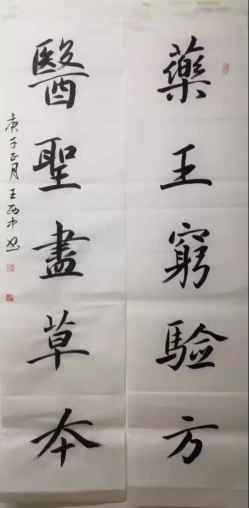 藥王窮驗方
醫聖盡草本
庚子正月王西中書